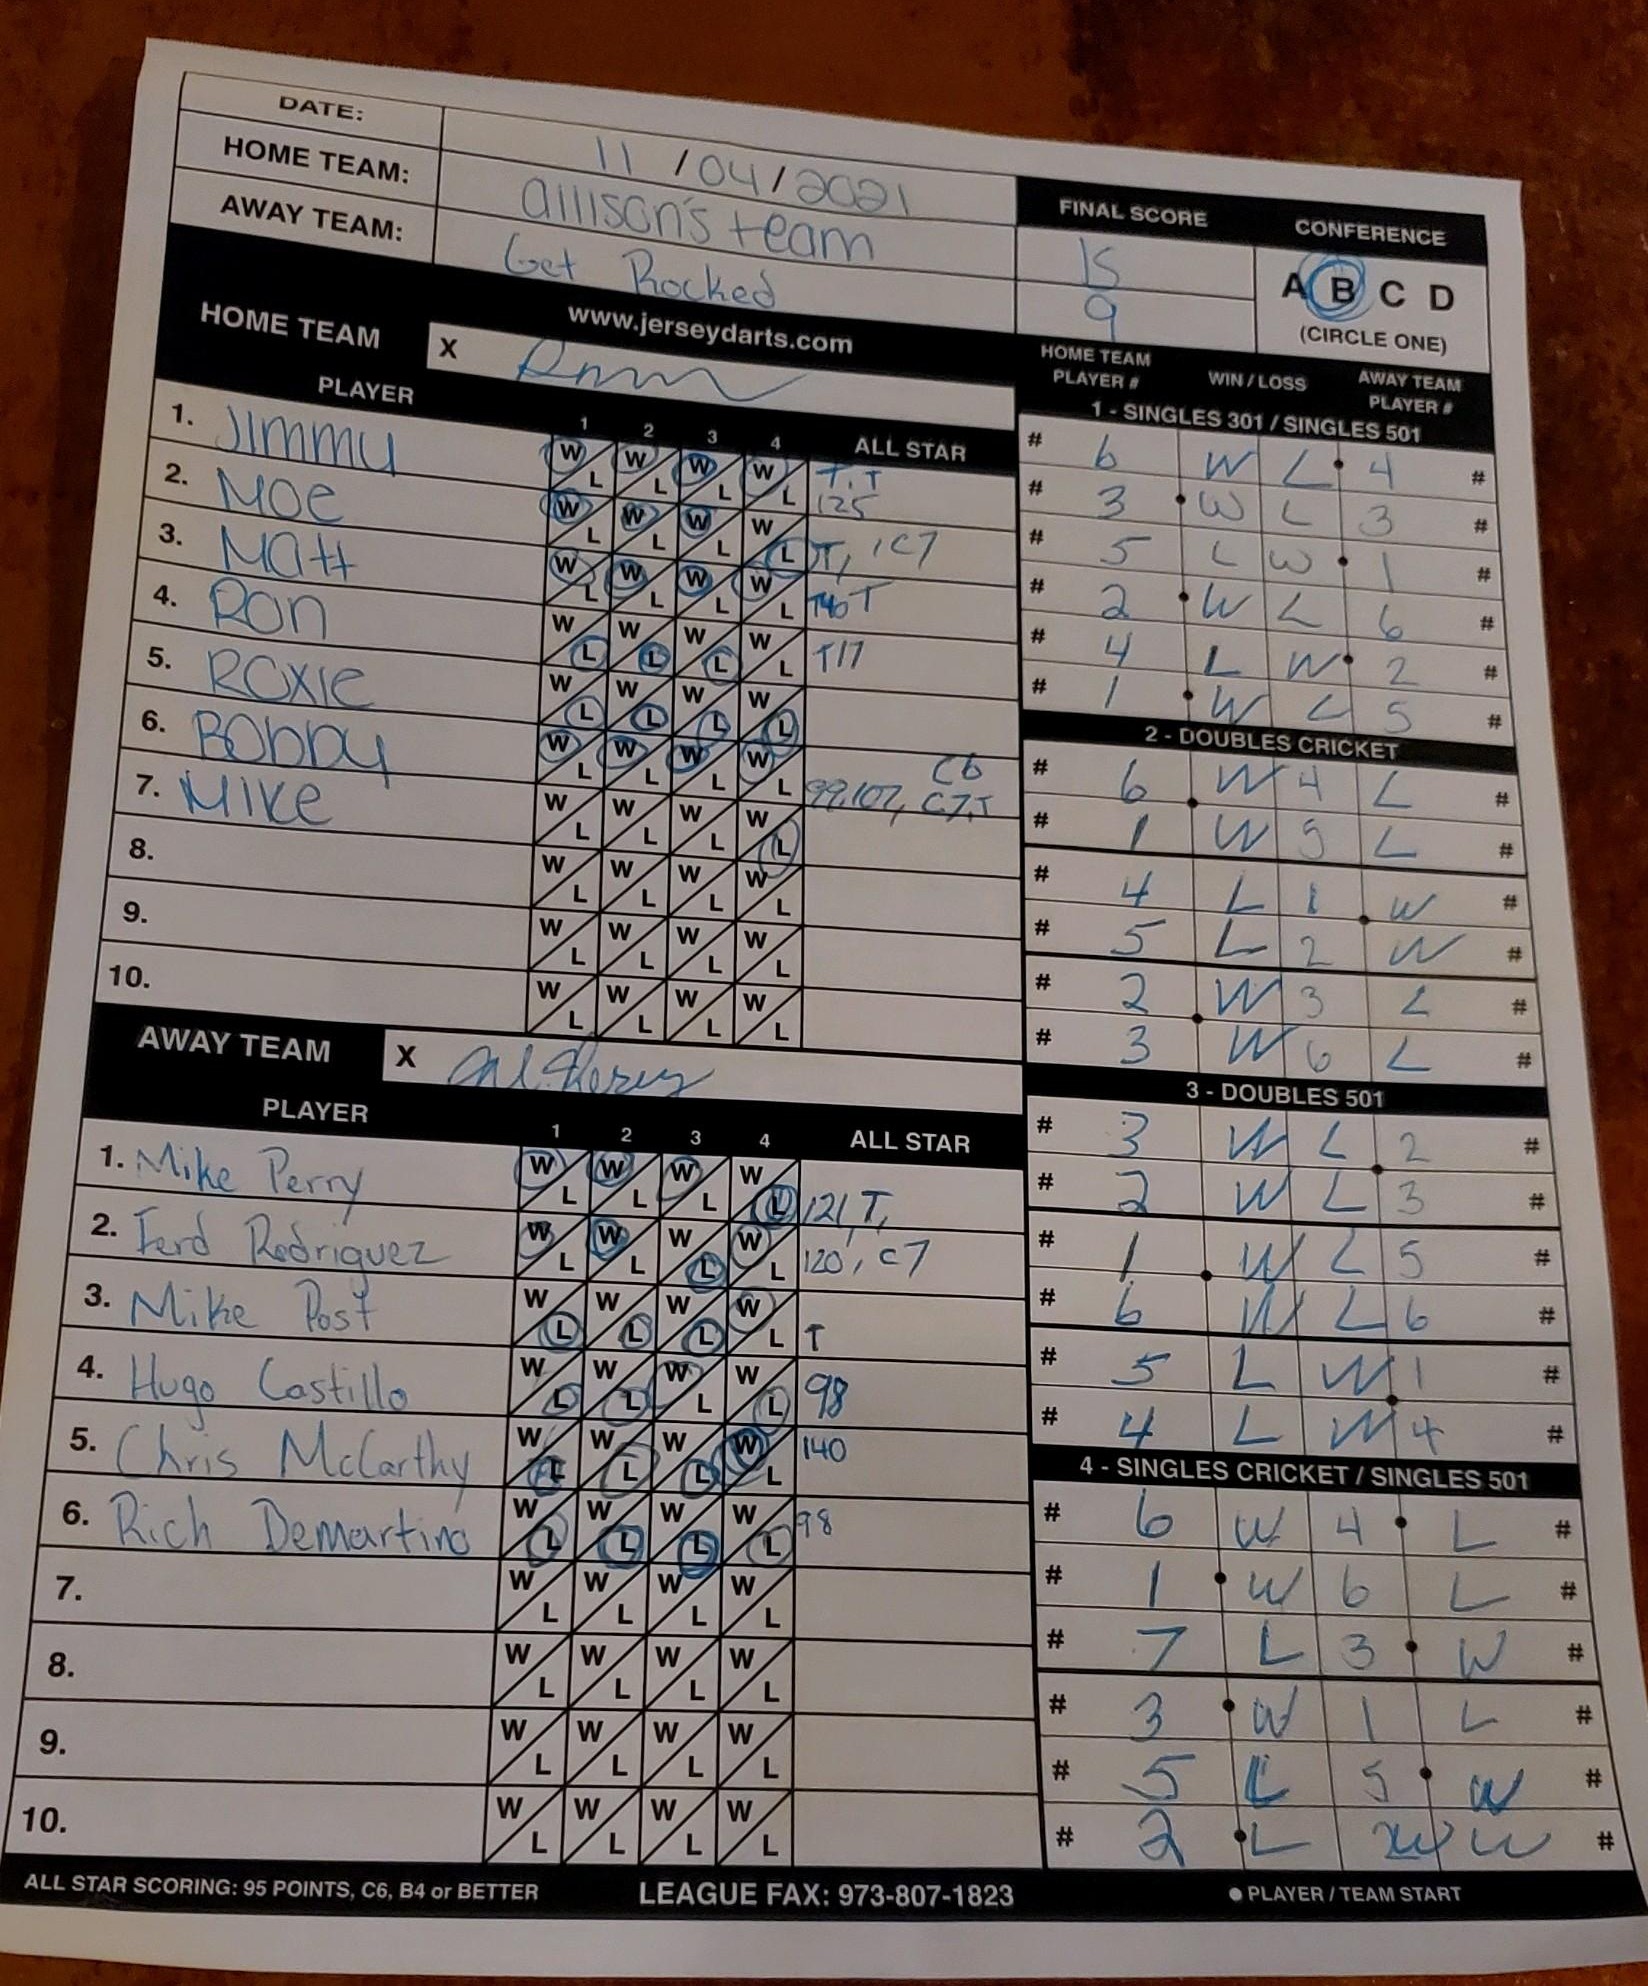 DATE: 11/04/2021
HOME TEAM: allison's team
AWAY TEAM: Get Rocked
FINAL SCORE
15
9
CONFERENCE
A B C D
(CIRCLE ONE)
HOME TEAM X
www.jerseydarts.com
PLAYER 1 2 3 4 ALL STAR
1. Jimmy W L W L W L W L T, T 125
2. Moe W L W L W L W L T, 1C7
3. Matt W L W L W L W L 140 T
4. Ron W L W L W L W L T117
5. Roxie W L W L W L W L
6. Bobby W L W L W L W L C6 99,107, C7,T
7. Mike W L W L W L W L
8. W L W L W L W L
9. W L W L W L W L
10. W L W L W L W L
AWAY TEAM X
PLAYER 1 2 3 4 ALL STAR
1. Mike Perry W L W L W L W L 121, T,
2. Ferd Rodriguez W L W L W L W L 120, C7
3. Mike Post W L W L W L W L T
4. Hugo Castillo W L W L W L W L 98
5. Chris McCarthy W L W L W L W L 140
6. Rich Demartino W L W L W L W L 98
7. W L W L W L W L
8. W L W L W L W L
9. W L W L W L W L
10. W L W L W L W L
HOME TEAM PLAYER # WIN / LOSS AWAY TEAM PLAYER #
1 - SINGLES 301 / SINGLES 501
# 6 W L 4 #
# 3 W L 3 #
# 5 L W 1 #
# 2 W L 6 #
# 4 L W 2 #
# 1 W L 5 #
2 - DOUBLES CRICKET
# 6 W 4 L #
# 1 W 5 L #
# 4 L 1 W #
# 5 L 2 W #
# 2 W 3 L #
# 3 W 6 L #
3 - DOUBLES 501
# 3 W L 2 #
# 2 W L 3 #
# 1 W L 5 #
# 6 W L 6 #
# 5 L W 1 #
# 4 L W 4 #
4 - SINGLES CRICKET / SINGLES 501
# 6 W 4 L #
# 1 W 6 L #
# 7 L 3 W #
# 3 W 1 L #
# 5 L 5 W #
# 2 L W #
ALL STAR SCORING: 95 POINTS, C6, B4 or BETTER
LEAGUE FAX: 973-807-1823
● PLAYER / TEAM START